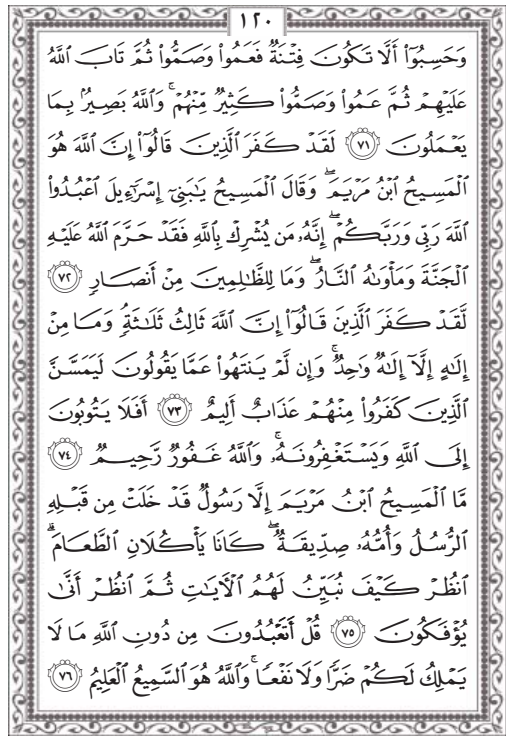 ١٢٠
وَحَسِبُوٓا۟ أَلَّا تَكُونَ فِتْنَةٌ فَعَمُوا۟ وَصَمُّوا۟ ثُمَّ تَابَ ٱللَّهُ
عَلَيْهِمْ ثُمَّ عَمُوا۟ وَصَمُّوا۟ كَثِيرٌ مِّنْهُمْ ۚ وَٱللَّهُ بَصِيرٌۢ بِمَا
يَعْمَلُونَ ٧١ لَقَدْ كَفَرَ ٱلَّذِينَ قَالُوٓا۟ إِنَّ ٱللَّهَ هُوَ
ٱلْمَسِيحُ ٱبْنُ مَرْيَمَ ۖ وَقَالَ ٱلْمَسِيحُ يَـٰبَنِىٓ إِسْرَٰٓءِيلَ ٱعْبُدُوا۟
ٱللَّهَ رَبِّى وَرَبَّكُمْ ۖ إِنَّهُۥ مَن يُشْرِكْ بِٱللَّهِ فَقَدْ حَرَّمَ ٱللَّهُ عَلَيْهِ
ٱلْجَنَّةَ وَمَأْوَىٰهُ ٱلنَّارُ ۖ وَمَا لِلظَّـٰلِمِينَ مِنْ أَنصَارٍ ٧٢
لَّقَدْ كَفَرَ ٱلَّذِينَ قَالُوٓا۟ إِنَّ ٱللَّهَ ثَالِثُ ثَلَـٰثَةٍ ۘ وَمَا مِنْ
إِلَـٰهٍ إِلَّآ إِلَـٰهٌ وَٰحِدٌ ۚ وَإِن لَّمْ يَنتَهُوا۟ عَمَّا يَقُولُونَ لَيَمَسَّنَّ
ٱلَّذِينَ كَفَرُوا۟ مِنْهُمْ عَذَابٌ أَلِيمٌ ٧٣ أَفَلَا يَتُوبُونَ
إِلَى ٱللَّهِ وَيَسْتَغْفِرُونَهُۥ ۚ وَٱللَّهُ غَفُورٌ رَّحِيمٌ ٧٤
مَّا ٱلْمَسِيحُ ٱبْنُ مَرْيَمَ إِلَّا رَسُولٌ قَدْ خَلَتْ مِن قَبْلِهِ
ٱلرُّسُلُ وَأُمُّهُۥ صِدِّيقَةٌ ۖ كَانَا يَأْكُلَانِ ٱلطَّعَامَ ۗ
ٱنظُرْ كَيْفَ نُبَيِّنُ لَهُمُ ٱلْـَٔايَـٰتِ ثُمَّ ٱنظُرْ أَنَّىٰ
يُؤْفَكُونَ ٧٥ قُلْ أَتَعْبُدُونَ مِن دُونِ ٱللَّهِ مَا لَا
يَمْلِكُ لَكُمْ ضَرًّا وَلَا نَفْعًا ۚ وَٱللَّهُ هُوَ ٱلسَّمِيعُ ٱلْعَلِيمُ ٧٦